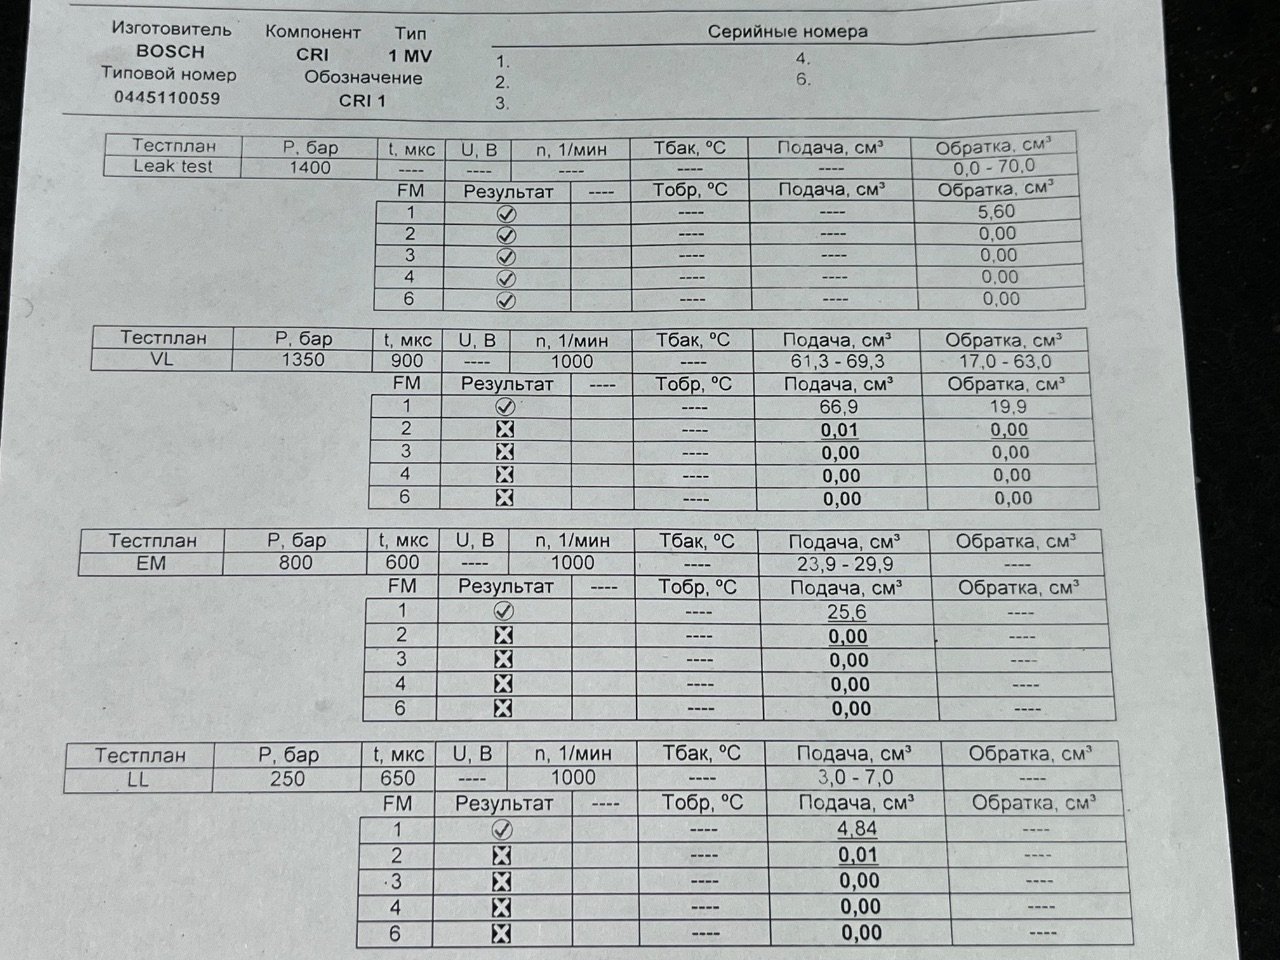 Изготовитель Компонент Тип Серийные номера
BOSCH CRI 1 MV 1. 4.
Типовой номер Обозначение 2. 6.
0445110059 CRI 1 3.
Тестплан P, бар t, мкс U, В n, 1/мин Tбак, ºC Подача, см³ Обратка, см³
Leak test 1400 ---- ---- ---- ---- ---- 0,0 - 70,0
FM Результат ---- Tобр, ºC Подача, см³ Обратка, см³
1 ---- ---- 5,60
2 ---- ---- 0,00
3 ---- ---- 0,00
4 ---- ---- 0,00
6 ---- ---- 0,00
Тестплан P, бар t, мкс U, В n, 1/мин Tбак, ºC Подача, см³ Обратка, см³
VL 1350 900 ---- 1000 ---- 61,3 - 69,3 17,0 - 63,0
FM Результат ---- Tобр, ºC Подача, см³ Обратка, см³
1 ---- 66,9 19,9
2 ---- 0,01 0,00
3 ---- 0,00 0,00
4 ---- 0,00 0,00
6 ---- 0,00 0,00
Тестплан P, бар t, мкс U, В n, 1/мин Tбак, ºC Подача, см³ Обратка, см³
EM 800 600 ---- 1000 ---- 23,9 - 29,9 ----
FM Результат ---- Tобр, ºC Подача, см³ Обратка, см³
1 ---- 25,6 ----
2 ---- 0,00 ----
3 ---- 0,00 ----
4 ---- 0,00 ----
6 ---- 0,00 ----
Тестплан P, бар t, мкс U, В n, 1/мин Tбак, ºC Подача, см³ Обратка, см³
LL 250 650 ---- 1000 ---- 3,0 - 7,0 ----
FM Результат ---- Tобр, ºC Подача, см³ Обратка, см³
1 ---- 4,84 ----
2 ---- 0,01 ----
3 ---- 0,00 ----
4 ---- 0,00 ----
6 ---- 0,00 ----